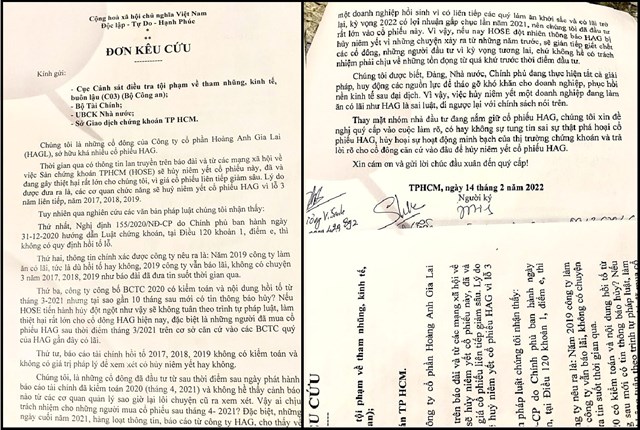 Cộng hoà xã hội chủ nghĩa Việt Nam
Độc lập - Tự Do - Hạnh Phúc
ĐƠN KÊU CỨU
Kính gửi:
- Cục Cảnh sát điều tra tội phạm về tham nhũng, kinh tế,
buôn lậu (C03) (Bộ Công an);
- Bộ Tài Chính;
- UBCK Nhà nước;
- Sở Giao dịch chứng khoán TP HCM.
Chúng tôi là những cổ đông của Công ty cổ phần Hoàng Anh Gia Lai
(HAGL), sở hữu khá nhiều cổ phiếu HAG.
Thời gian qua có thông tin lan truyền trên báo đài và từ các mạng xã hội về
việc Sàn chứng khoán TPHCM (HOSE) sẽ hủy niêm yết cổ phiếu này, đã và
đang gây thiệt hại rất lớn cho chúng tôi, vì giá cổ phiếu liên tiếp giảm sâu. Lý do
được đưa ra là, các cơ quan chức năng sẽ huỷ niêm yết cổ phiếu HAG vì lỗ 3
năm liên tiếp, năm 2017, 2018, 2019.
Tuy nhiên qua nghiên cứu các văn bản pháp luật chúng tôi nhận thấy:
Thứ nhất, Nghị định 155/2020/NĐ-CP do Chính phủ ban hành ngày
31-12-2020 hướng dẫn Luật chứng khoán, tại Điều 120 khoản 1, điểm e, thì
không có quy định hồi tố lỗ.
Thứ hai, thông tin chính xác được công ty nêu ra là: Năm 2019 công ty làm
ăn có lãi, tức là dù hồi tố hay không, 2019 công ty vẫn báo lãi, không có chuyện
3 năm 2017, 2018, 2019 như báo đài đã đưa tin suốt thời gian qua.
Thứ ba, công ty công bố BCTC 2020 có kiểm toán và nội dung hồi tố từ
tháng 3-2021 nhưng tại sao gần 10 tháng sau mới có tin thông báo hủy? Nếu
HOSE tiến hành hủy đột ngột như vậy sẽ không tuân theo trình tự pháp luật, làm
thiệt hại rất lớn cho cổ đông HAG hiện nay, đặc biệt là những người đã mua cổ
phiếu HAG sau thời điểm tháng 3/2021 trên cơ sở căn cứ vào các BCTC quý
của HAG gần đây có lãi.
Thứ tư, báo cáo tài chính hồi tố 2017, 2018, 2019 không có kiểm toán và
không có giá trị pháp lý để xem xét có hủy niêm yết hay không.
Chúng tôi, là những cổ đông đã đầu tư từ sau thời điểm sau ngày phát hành
báo cáo tài chính đã kiểm toán 2020 (tháng 4, 2021) và không hề thấy cảnh báo
nào từ các cơ quan quản lý sao giờ lại gợi chuyện cũ ra xem xét. Vậy ai chịu
trách nhiệm cho những người mua cổ phiếu sau tháng 4- 2021? Đặc biệt, những
ngày cuối năm 2021, hàng loạt thông tin, báo cáo từ công ty HAG, cho thấy về
một doanh nghiệp hồi sinh vì có liên tiếp các quý làm ăn khởi sắc và có lãi trở
lại, kỳ vọng 2022 có lợi nhuận gấp chục lần năm 2021, nên chúng tôi đã đầu tư
rất lớn vào cổ phiếu này. Vì vậy, nếu nay HOSE đột nhiên thông báo HAG bị
hủy niêm yết vì những chuyện xảy ra từ những năm trước, sẽ gián tiếp giết chết
các cổ đông, những người đầu tư vì kỳ vọng tương lai, chứ không có trách
nhiệm phải chịu về những tồn đọng từ quá khứ trước thời điểm đầu tư.
Chúng tôi được biết, Đảng, Nhà nước, Chính phủ đang thực hiện tất cả giải
pháp, huy động các nguồn lực để tháo gỡ khó khăn cho doanh nghiệp, phục hồi
nền kinh tế sau đại dịch. Vì vậy, việc hủy niêm yết một doanh nghiệp đang làm
ăn có lãi như HAG là sai luật, đi ngược lại với chính sách nói trên.
Thay mặt nhóm nhà đầu tư đang nắm giữ cổ phiếu HAG, chúng tôi xin đề
nghị quý cấp vào cuộc làm rõ, có hay không sự tung tin sai sự thật phá hoại cổ
phiếu HAG, hủy hoại sự hoạt động minh bạch của thị trường chứng khoán và trả
lời rõ cho cổ đông căn cứ vào đâu để hủy niêm yết cổ phiếu HAG.
Xin cám ơn và gửi lời chúc đầu xuân đến quý cấp!
TPHCM, ngày 14 tháng 2 năm 2022
Người ký